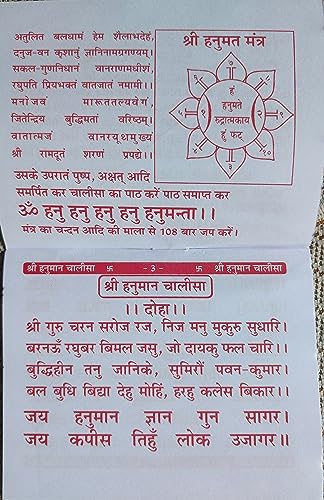 अतुलित बलधामं हेम शैलाभदेहं,
दनुज-वन कृशानुं ज्ञानिनामग्रगण्यम्।
सकल-गुणनिधानं वानराणमधीशं,
रघुपति प्रियभक्तं वातजातं नमामी।।
मनोजवं मारूततल्यवेगं,
जितेन्द्रिय बुद्धिमतां वरिष्ठम्।
वातात्मजं वानरयूथमुख्यं
श्री रामदूतं शरणं प्रपद्ये।।
श्री हनुमत मंत्र
हं
हनुमते
रुद्रात्मकाय
हुं फट्
उसके उपरातं पुष्प, अक्षत् आदि
समर्पित कर चालीसा का पाठ करें पाठ समाप्त कर
ॐ हनु हनु हनु हनु हनुमन्ता।।
मंत्र का चन्दन आदि की माला से 108 बार जप करें।
श्री हनुमान चालीसा 卐 - 3 - 卐 श्री हनुमान चालीसा
श्री हनुमान चालीसा
।। दोहा।।
श्री गुरु चरन सरोज रज, निज मनु मुकुरु सुधारि।
बरनऊँ रघुबर बिमल जसु, जो दायकु फल चारि।।
बुद्धिहीन तनु जानिके, सुमिरौं पवन-कुमार।
बल बुधि बिद्या देहु मोहिं, हरहु कलेस बिकार।।
जय हनुमान ज्ञान गुन सागर।
जय कपीस तिहुँ लोक उजागर॥